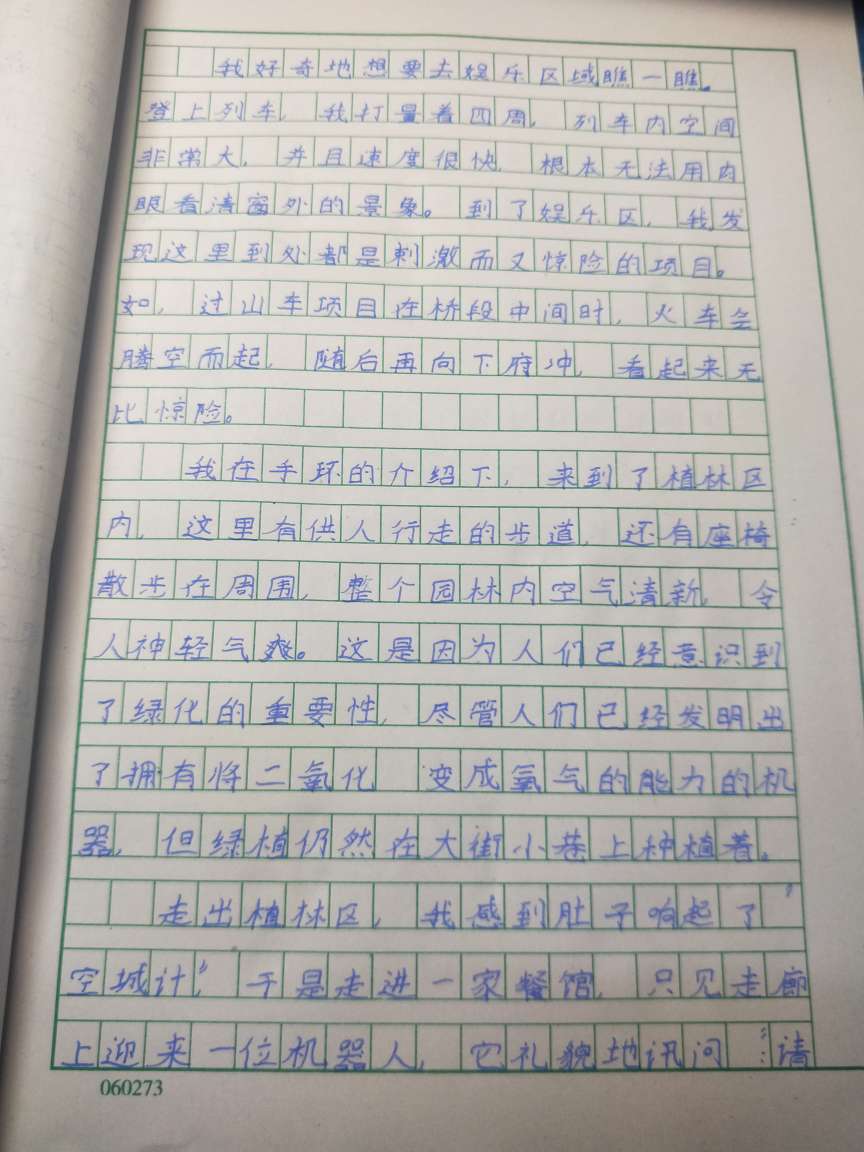 我好奇地想要去娱乐区域瞧一瞧。
登上列车，我打量着四周，列车内空间
非常大，并且速度很快，根本无法用内
眼看清窗外的景象。到了娱乐区，我发
现这里到处都是刺激而又惊险的项目。
如，过山车项目在桥段中间时，火车会
腾空而起，随后再向下府冲，看起来无
比惊险。
我在手环的介绍下，来到了植林区
内，这里有供人行走的步道，还有座椅
散步在周围，整个园林内空气清新，令
人神轻气爽。这是因为人们已经意识到
了绿化的重要性，尽管人们已经发明出
了拥有将二氧化 变成氧气的能力的机
器，但绿植仍然在大街小巷上种植着。
走出植林区，我感到肚子响起了“
空城计”，于是走进一家餐馆，只见走廊
上迎来一位机器人，它礼貌地讯问：“请
060273